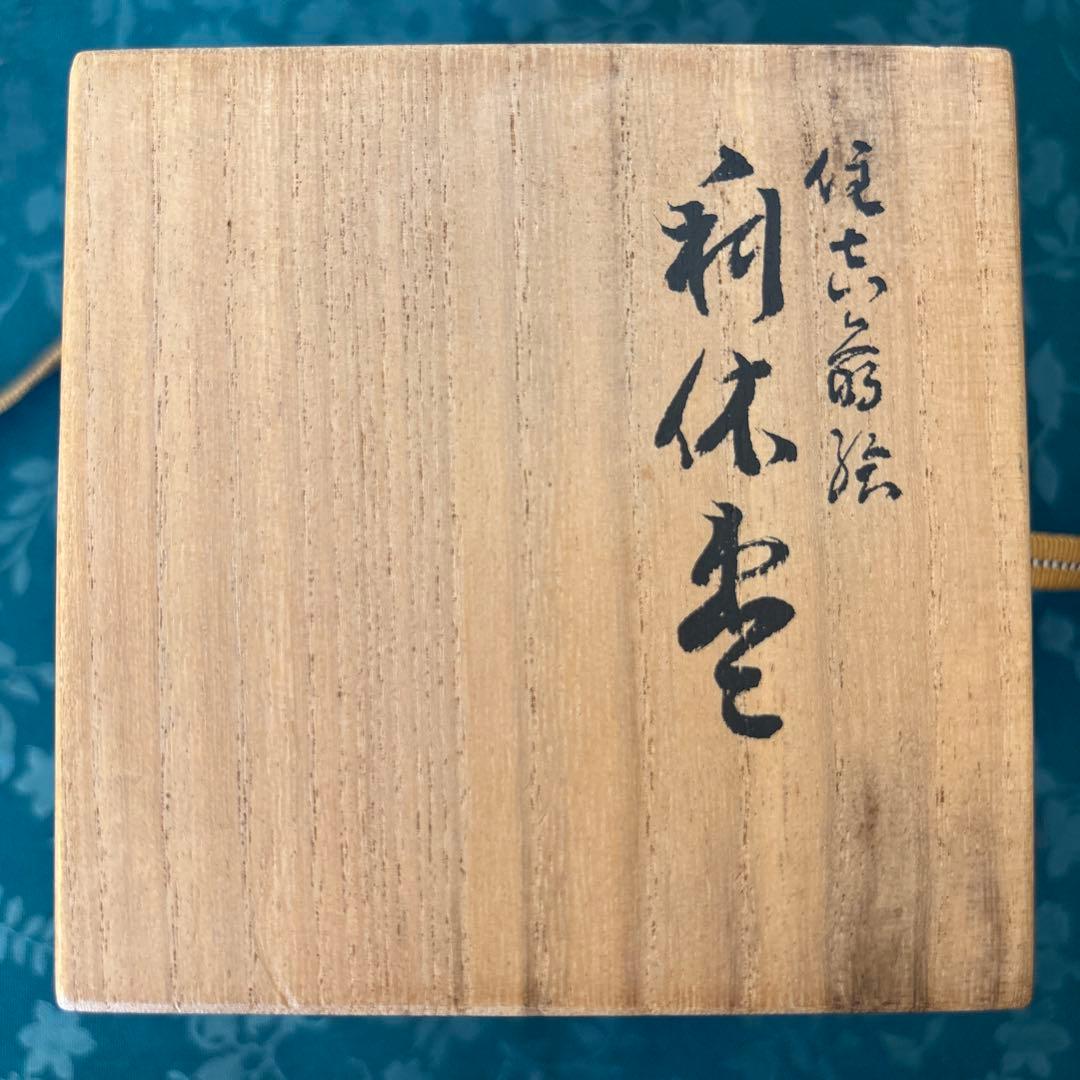 住吉蒔絵
利休棗